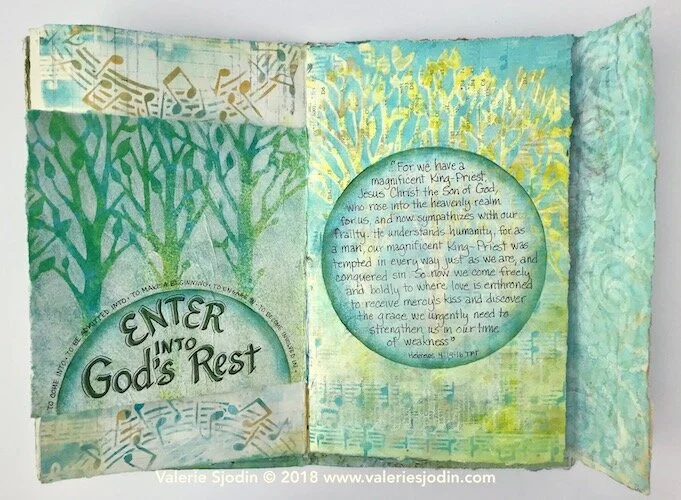 TO COME INTO • TO BE ADMITTED INTO • TO MAKE A BEGINNING • TO ENGAGE IN • TO BECOME INVOLVED IN
ENTER
INTO
God's Rest
"For we have a
magnificent King-Priest,
Jesus Christ the Son of God,
who rose into the heavenly realm
for us, and now sympathizes with our
frailty. He understands humanity, for as
a man, our magnificent King-Priest was
tempted in every way just as we are, and
conquered sin. So now we come freely
and boldly to where love is enthroned
to receive mercy's kiss and discover
the grace we urgently need to
strengthen us in our time
of weakness"
Hebrews 4:14-16 TPT
Valerie Sjodin © 2018 www.valeriesjodin.com